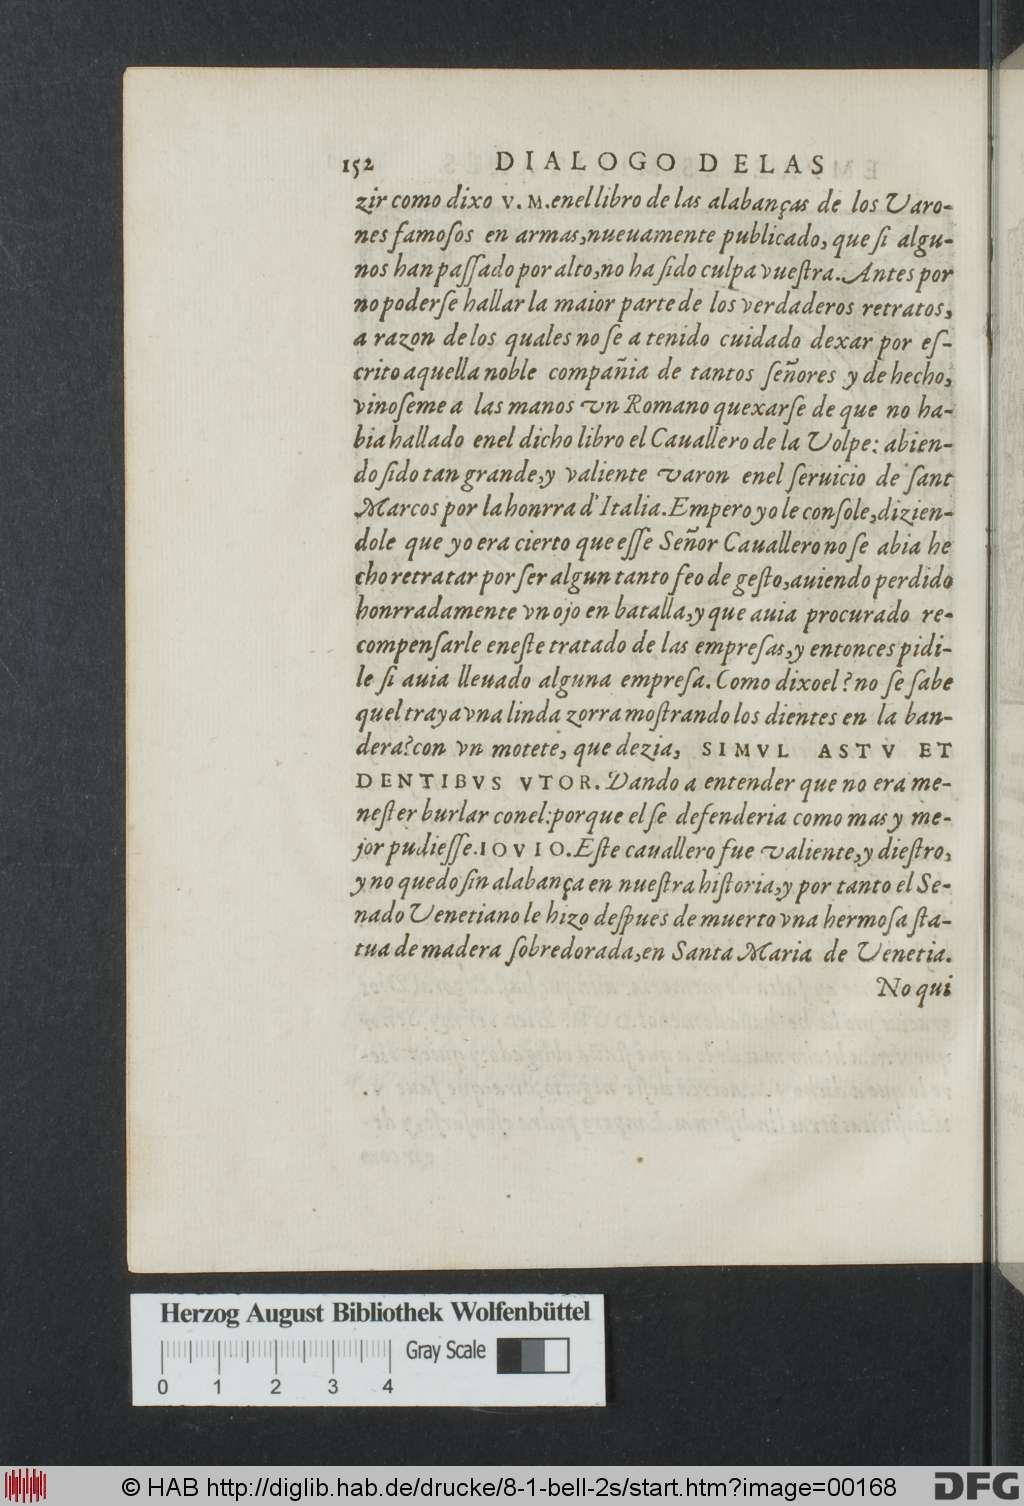 152 DIALOGO DE LAS
zir como dixo V. M. enel libro de las alabanças de los Varo-
nes famosos en armas, nueuamente publicado, que si algu-
nos han passado por alto, no ha sido culpa vuestra. Antes por
no poderse hallar la maior parte de los verdaderos retratos,
a razon de los quales no se a tenido cuidado dexar por es-
crito aquella noble compañia de tantos señores y de hecho,
vinoseme a las manos vn Romano quexarse de que no ha-
bia hallado enel dicho libro el Cauallero de la Volpe: abien-
do sido tan grande, y valiente varon enel seruicio de sant
Marcos por la honrra d'Italia. Empero yo le console, dizien-
dole que yo era cierto que esse Señor Cauallero no se abia he
cho retratar por ser algun tanto feo de gesto, auiendo perdido
honrradamente vn ojo en batalla, y que auia procurado re-
compensarle eneste tratado de las empresas, y entonces pidi-
le si auia lleuado alguna empresa. Como dixo el? no se sabe
quel traya vna linda zorra mostrando los dientes en la ban-
dera? con vn motete, que dezia, SIMVL ASTV ET
DENTIBVS VTOR. Dando a entender que no era me-
nester burlar conel: porque el se defenderia como mas y me-
jor pudiesse. IOVIO. Este cauallero fue valiente, y diestro,
y no quedo sin alabança en nuestra historia, y por tanto el Se-
nado Venetiano le hizo despues de muerto vna hermosa sta-
tua de madera sobredorada, en Santa Maria de Venetia.
No qui
Herzog August Bibliothek Wolfenbüttel
Gray Scale
0 1 2 3 4
© HAB http://diglib.hab.de/drucke/8-1-bell-2s/start.htm?image=00168
DFG